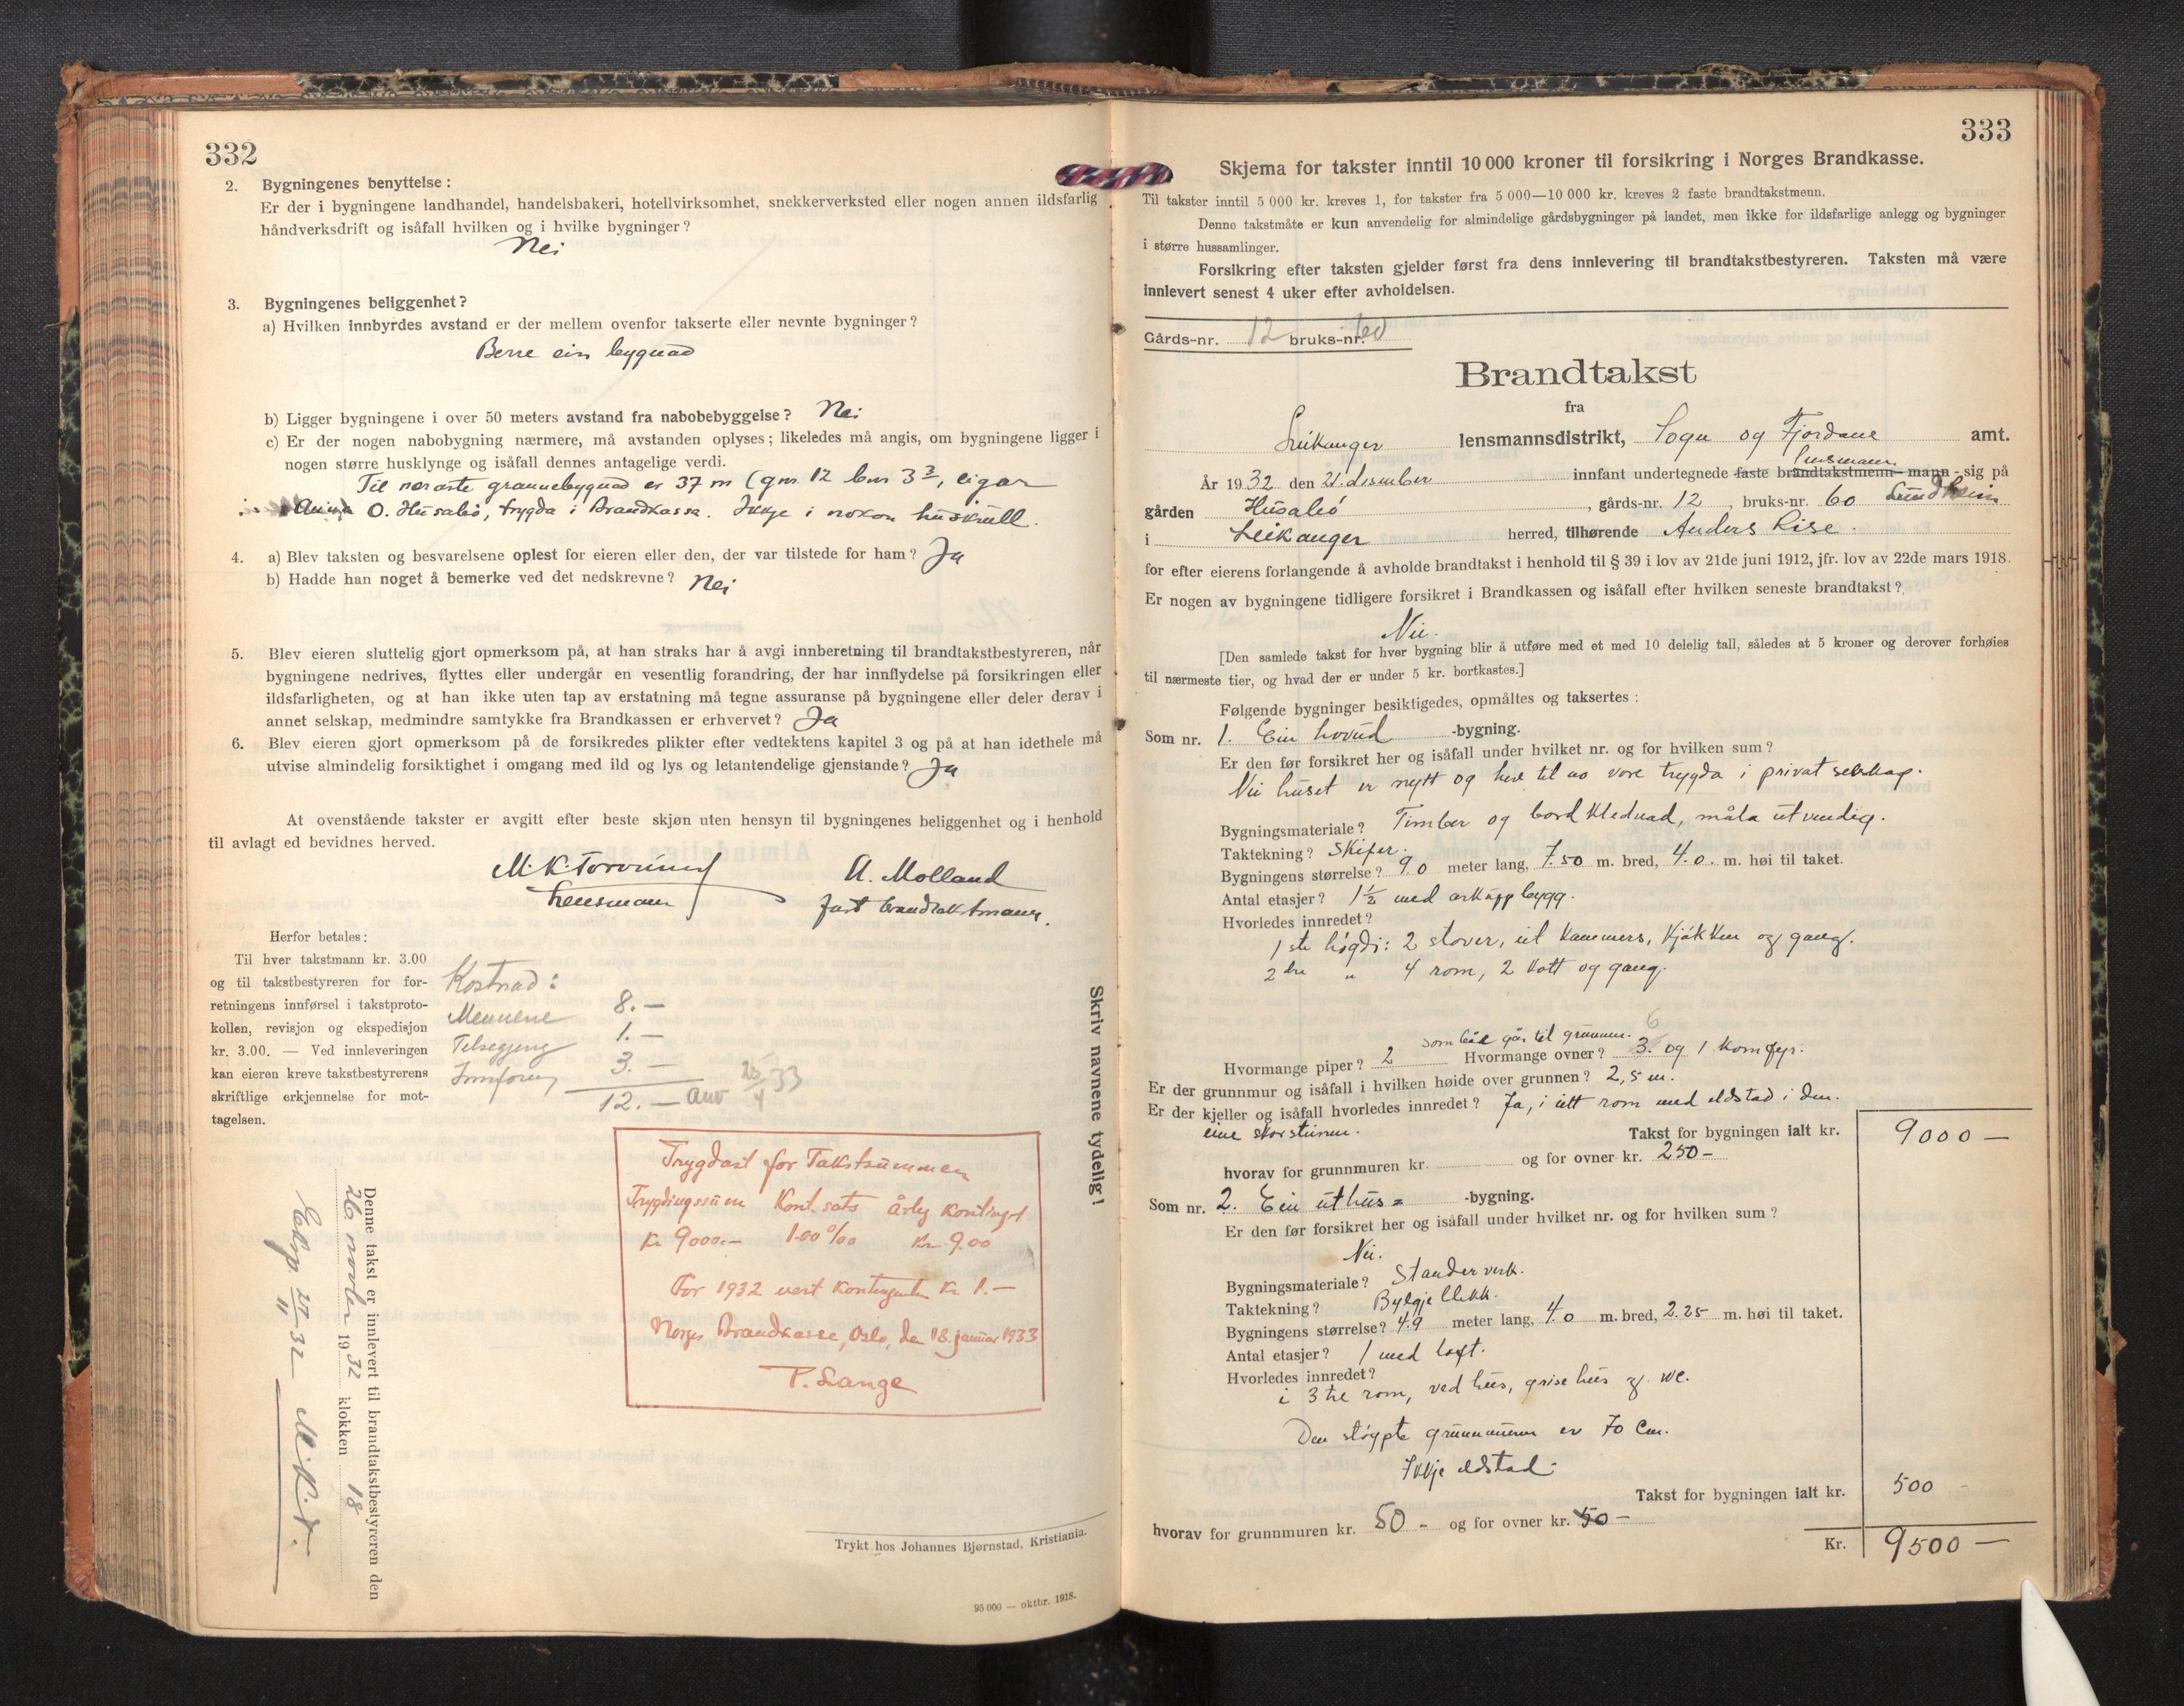 332
2. Bygningenes benyttelse:
Er der i bygningene landhandel, handelsbakeri, hotellvirksomhet, snekkerverksted eller nogen annen ildsfarlig
håndverksdrift og isåfall hvilken og i hvilke bygninger?
Nei
3. Bygningenes beliggenhet?
a) Hvilken innbyrdes avstand er der mellem ovenfor takserte eller nevnte bygninger?
Berre ein bygnad
b) Ligger bygningene i over 50 meters avstand fra nabobebyggelse? Nei
c) Er der nogen nabobygning nærmere, må avstanden oplyses; likeledes må angis, om bygningene ligger i
nogen større husklynge og isåfall dennes antagelige verdi.
Til næraste grannebygnad er 37 m (gnr. 12 bnr 3³, eigar
Anna O. Husabø, trygda i Brandkassa. Ikkje i nokon huskrull.
4. a) Blev taksten og besvarelsene oplest for eieren eller den, der var tilstede for ham? Ja
b) Hadde han noget å bemerke ved det nedskrevne? Nei
5. Blev eieren sluttelig gjort opmerksom på, at han straks har å avgi innberetning til brandtakstbestyreren, når
bygningene nedrives, flyttes eller undergår en vesentlig forandring, der har innflydelse på forsikringen eller
ildsfarligheten, og at han ikke uten tap av erstatning må tegne assuranse på bygningene eller deler derav i
annet selskap, medmindre samtykke fra Brandkassen er erhvervet? Ja
6. Blev eieren gjort opmerksom på de forsikredes plikter efter vedtektens kapitel 3 og på at han idethele må
utvise almindelig forsiktighet i omgang med ild og lys og letantendelige gjenstande? Ja
At ovenstående takster er avgitt efter beste skjøn uten hensyn til bygningenes beliggenhet og i henhold
til avlagt ed bevidnes herved.
M. K. Torvund A. Molland
Lensmann fast brandtakstmann.
Herfor betales:
Til hver takstmann kr. 3.00
og til takstbestyreren for for-
retningens innførsel i takstproto-
kollen, revisjon og ekspedisjon
kr. 3.00. — Ved innleveringen
kan eieren kreve takstbestyrerens
skriftlige erkjennelse for mot-
tagelsen.
Kostnad:
Mennene 8.—
Tilsegjing 1.—
Innføring 3.—
12.— anv 25/4 33
Trygdast for Takstsummen
Trygdingssum Kont. sats årleg kontingent
Kr 9000.— 1.00 ‰ Kr. 9.00
For 1932 vert kontingenten kr 1.—
Norges Brandkasse, Oslo, den 18. januar 1933
P. Lange
Denne takst er innlevert til brandtakstbestyreren den
26 novbr 1932 klokken 18
Eksp. 27/11-32 M.K.T.
Skriv navnene tydelig!
Trykt hos Johannes Bjørnstad, Kristiania.
95 000 — oktbr. 1918.
333
Skjema for takster inntil 10 000 kroner til forsikring i Norges Brandkasse.
Til takster inntil 5 000 kr. kreves 1, for takster fra 5 000—10 000 kr. kreves 2 faste brandtakstmenn.
Denne takstmåte er kun anvendelig for almindelige gårdsbygninger på landet, men ikke for ildsfarlige anlegg og bygninger
i større hussamlinger.
Forsikring efter taksten gjelder først fra dens innlevering til brandtakstbestyreren. Taksten må være
innlevert senest 4 uker efter avholdelsen.
Gårds-nr. 12 bruks-nr. 60
Brandtakst
fra
Leikanger lensmannsdistrikt, Sogn og Fjordane amt.
År 1932 den 21. desember innfant undertegnede faste brandtakstmenn- mann - sig på
lensmann
gården Husabø, gårds-nr. 12, bruks-nr. 60 Lundheim
i Leikanger herred, tilhørende Anders Lise.
for efter eierens forlangende å avholde brandtakst i henhold til § 39 i lov av 21de juni 1912, jfr. lov av 22de mars 1918.
Er nogen av bygningene tidligere forsikret i Brandkassen og isåfall efter hvilken seneste brandtakst?
Nei.
[Den samlede takst for hver bygning blir å utføre med et med 10 delelig tall, således at 5 kroner og derover forhøies
til nærmeste tier, og hvad der er under 5 kr. bortkastes.]
Følgende bygninger besiktigedes, opmåltes og taksertes:
Som nr. 1. Ein hovud -bygning.
Er den før forsikret her og isåfall under hvilket nr. og for hvilken sum?
Nei huset er nytt og have til no vore trygda i privat selskap.
Bygningsmateriale? Timber og bordklednad, måla utvendig.
Taktekning? Skifer.
Bygningens størrelse? 9.0 meter lang, 7.50 m. bred, 4.0. m. høi til taket.
Antal etasjer? 1½ med arkuppbygg.
Hvorledes innredet?
1ste høgdi: 2 stover, eit kammers, kjøkken og gang.
2dre " 4 rom, 2 kott og gang.
som båe går til grunnen. 6
Hvormange piper? 2 Hvormange ovner? 3. og 1 komfyr.
Er der grunnmur og isåfall i hvilken høide over grunnen? 2,5 m.
Er der kjeller og isåfall hvorledes innredet? Ja, i eitt rom med eldstad i den.
eine skorsteinen.
Takst for bygningen ialt kr. 9000 —
hvorav for grunnmuren kr. og for ovner kr. 250 —
Som nr. 2. Ein uthus= -bygning.
Er den før forsikret her og isåfall under hvilket nr. og for hvilken sum?
Nei.
Bygningsmateriale? Standerverk.
Taktekning? Bylgjeblikk.
Bygningens størrelse? 4.9 meter lang, 4.0 m. bred, 2.25 m. høi til taket.
Antal etasjer? 1 med loft.
Hvorledes innredet?
i 3 tre rom, ved hus, grise hus og wc.
Den støypte grunnmuren er 70 Cm.
Ikkje eldstad
Takst for bygningen ialt kr. 500
hvorav for grunnmuren kr. 50 - og for ovner kr. 50 —
Kr. 9500 —